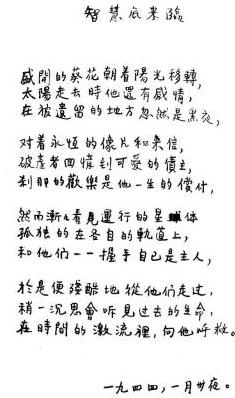 智慧底来臨
盛開的葵花朝着陽光移轉，
太陽走去時他還有感情，
在被遺留的地方忽然是黑夜，
对着永恆的像片和来信，
破產者回憶到可愛的債主，
刹那的歡樂是他一生的償付，
然而漸漸看見運行的星体
孤獨的在各自的軌道上，
和他們一一握手自己是主人，
於是便殘酷地從他們走过，
稍一沉思會听見过去的生命，
在時間的激流裡，向他呼救。
一九四四，一月卅夜。